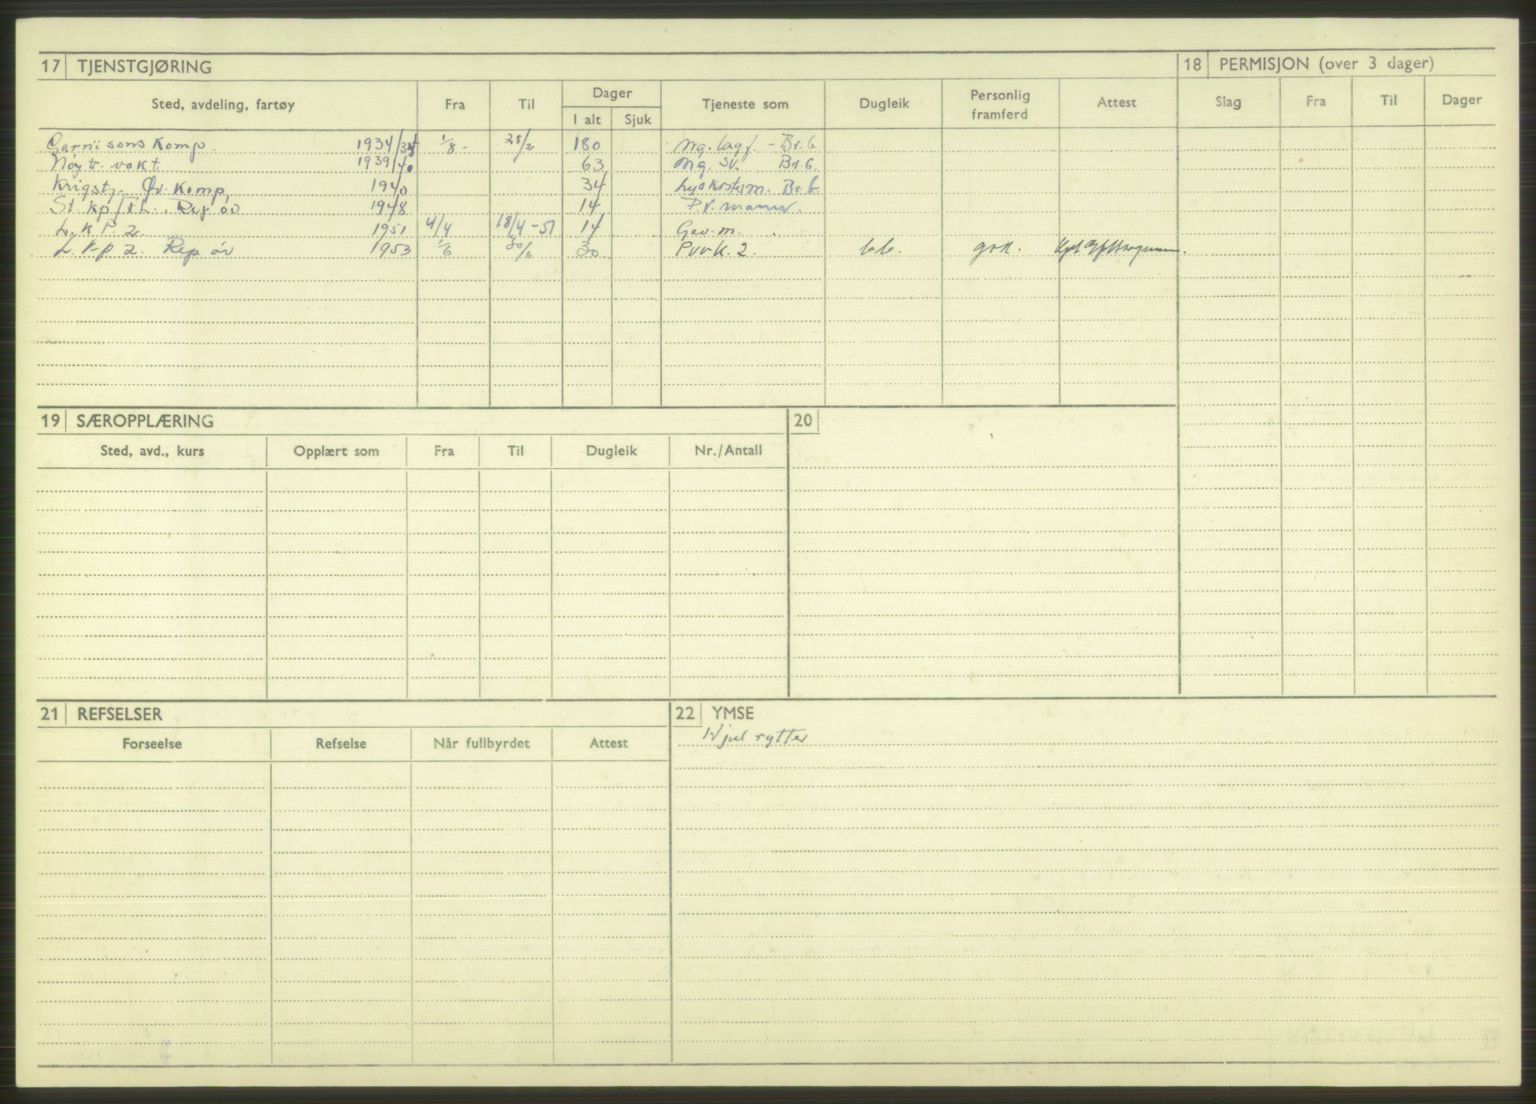 17 TJENSTGJØRING
Sted, avdeling, fartøy Fra Til Dager I alt Sjuk Tjeneste som Dugleik Personlig framferd Attest
Garnisons Komp. 1934/35 1/8 - 28/2 180 Mg. lagf. - Br. b.
Nøytr. vakt 1939/40 63 Mg. sv. Br. b.
Krigstj. Øv. Komp. 1940 34 Br. b.
St. kp/ Rep øv 1948 14 P.V. mann.
L.K.P. 2. 1951 4/4 18/4-51 14 Gev. m.
L.K.p 2. Rep øv 1953 1/6 30/6 30 Pvrk. 2. b.b. god.
18 PERMISJON (over 3 dager)
Slag Fra Til Dager
19 SÆROPPLÆRING
Sted, avd., kurs Opplært som Fra Til Dugleik Nr./Antall
20
21 REFSELSER
Forseelse Refselse Når fullbyrdet Attest
22 YMSE
Hjulrytter